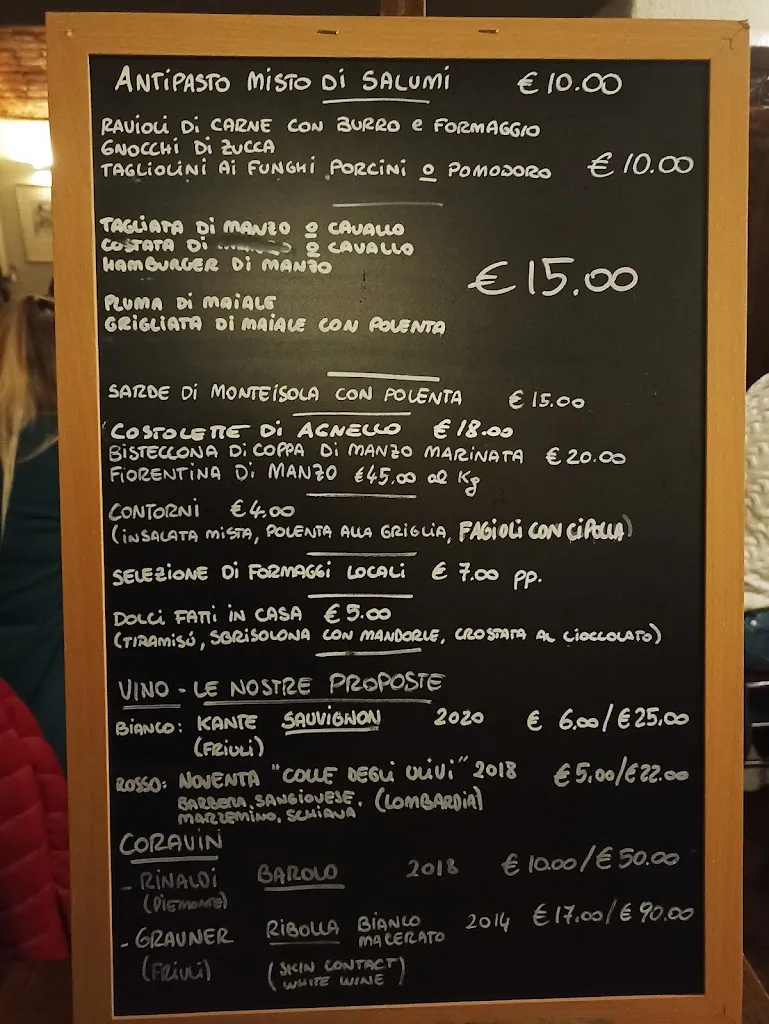 ANTIPASTO MISTO DI SALUMI € 10.00
RAVIOLI DI CARNE CON BURRO e FORMAGGIO
GNOCCHI DI ZUCCA
TAGLIOLINI AI FUNGHI PORCINI O POMODORO € 10.00
TAGLIATA DI MANZO O CAVALLO
COSTATA DI O CAVALLO
HAMBURGER DI MANZO
€ 15.00
PLUMA DI MAIALE
GRIGLIATA DI MAIALE CON POLENTA
SARDE DI MONTEISOLA CON POLENTA € 15.00
COSTOLETTE DI AGNELLO € 18.00
BISTECCONA DI COPPA DI MANZO MARINATA € 20.00
FIORENTINA DI MANZO €45,00 al Kg
CONTORNI €4.00
(INSALATA MISTA, POLENTA ALLA GRIGLIA, FAGIOLI CON CIPOLLA)
SELEZIONE DI FORMAGGI LOCALI € 7.00 PP.
DOLCI FATI IN CASA € 5.00
(TIRAMISÚ, SBRISOLONA CON MANDORLE, CROSTATA AL CIOCCOLATO)
VINO - LE NOSTRE PROPOSTE
BIANCO: KANTE SAUVIGNON 2020 € 6.00/€25.00
(FRIULI)
ROSSO: NOVENTA "COLLE DEGLI ULIVI" 2018 €5,00/€22.00
BARBERA, SANGIOVESE, (LOMBARDIA)
MARZEMINO, SCHIAVA
CORAVIN
- RINALDI BAROLO 2018 € 10.00/€50.00
(PIEMONTE)
- GRAUNER RIBOLLA BIANCO MACERATO 2014 €17.00/€90.00
(FRIULI) (SKIN CONTACT WHITE WINE)